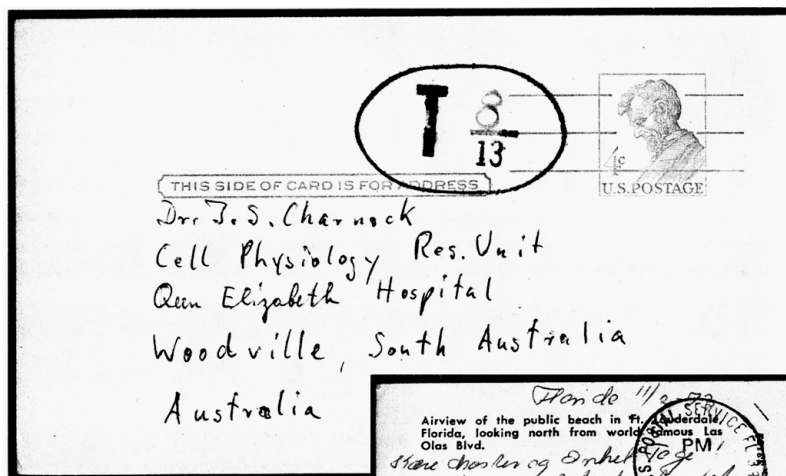 T 8
13
4¢
U.S. POSTAGE
THIS SIDE OF CARD IS FOR ADDRESS
Dr. J. S. Charnock
Cell Physiology Res. Unit
Queen Elizabeth Hospital
Woodville, South Australia
Australia
Florida 11/2
Airview of the public beach in Ft. Lauderdale,
Florida, looking north from world famous Las
Olas Blvd.
POSTAL SERVICE FL
PM
og Onkel